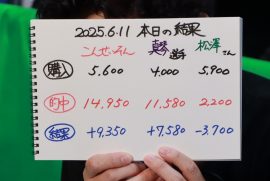 2025.6.11 本日の結果
こんどぅぞん 真琴選手 松澤さん
購入 5,600 4,000 5,900
的中 14,950 11,580 2,200
結果 +9,350 +7,580 -3,700